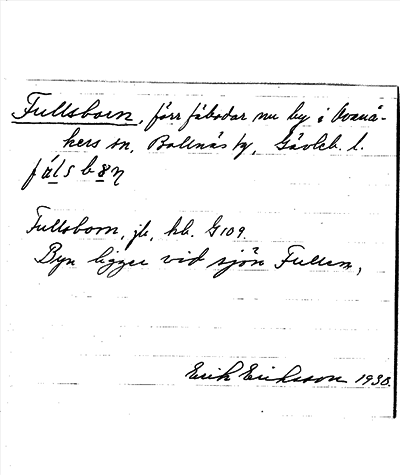 Fullsborn, förr fäbodar nu by i Ovanå-
kers sn, Bollnäs tg, Gävleb. l.
Fullsborn, jb, kb. G109.
Byn ligger vid sjön Fullsn,
Erik Eriksson 1930.